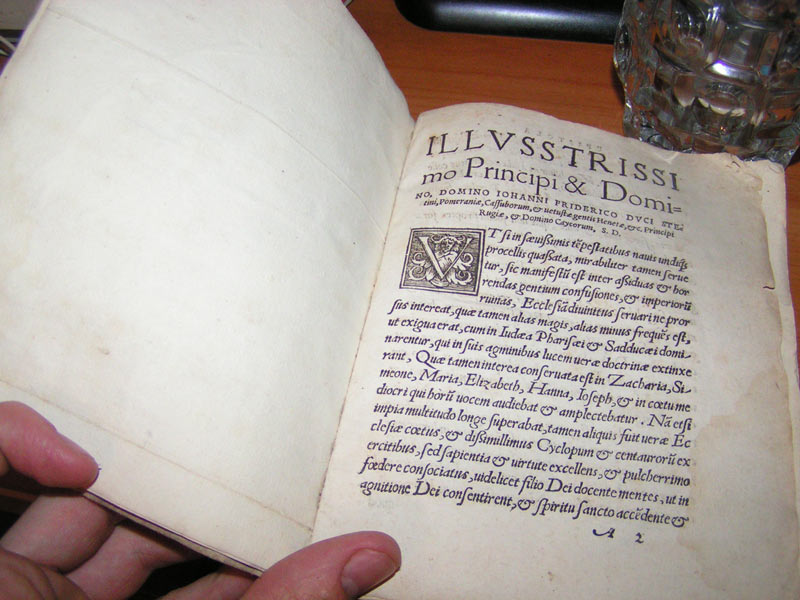 ILLVSSTRISSI
mo Principi & Domi=
NO, DOMINO IOHANNI FRIDERICO DVCI STE=
tini, Pomeraniæ, Cassuborum, & uetustæ gentis Henetæ, &c. Principi
Rugiæ, & Domino Caycorum. S. D.
VT si in sæuissimis tēpestatibus nauis undiqꝫ
procellis quassata, mirabiliter tamen serue
tur, sic manifestū est inter assiduas & hor
rendas gentium confusiones, & imperiorū
ruinas, Ecclesiā diuinitus seruari ne pror
sus intereat, quæ tamen alias magis, alias minus frequēs est,
ut exigua erat, cum in Iudæa Pharisæi & Sadducæi domi-
narentur, qui in suis agminibus lucem ueræ doctrinæ extinxe
rant, Quæ tamen interea conseruata est in Zacharia, Si
meone, Maria, Elizabeth, Hanna, Ioseph, & in cœtu me
diocri qui horū uocem audiebat & amplectebatur. Nā etsi
impia multitudo longe superabat, tamen aliquis fuit ueræ Ec
clesiæ cœtus, & dissimillimus Cyclopum & centaurorū ex
ercitibus, sed sapientia & uirtute excellens, & pulcherrimo
fœdere consociatus, uidelicet filio Dei docente mentes, ut in
agnitione Dei consentirent, & spiritu sancto accēdente &
A 2